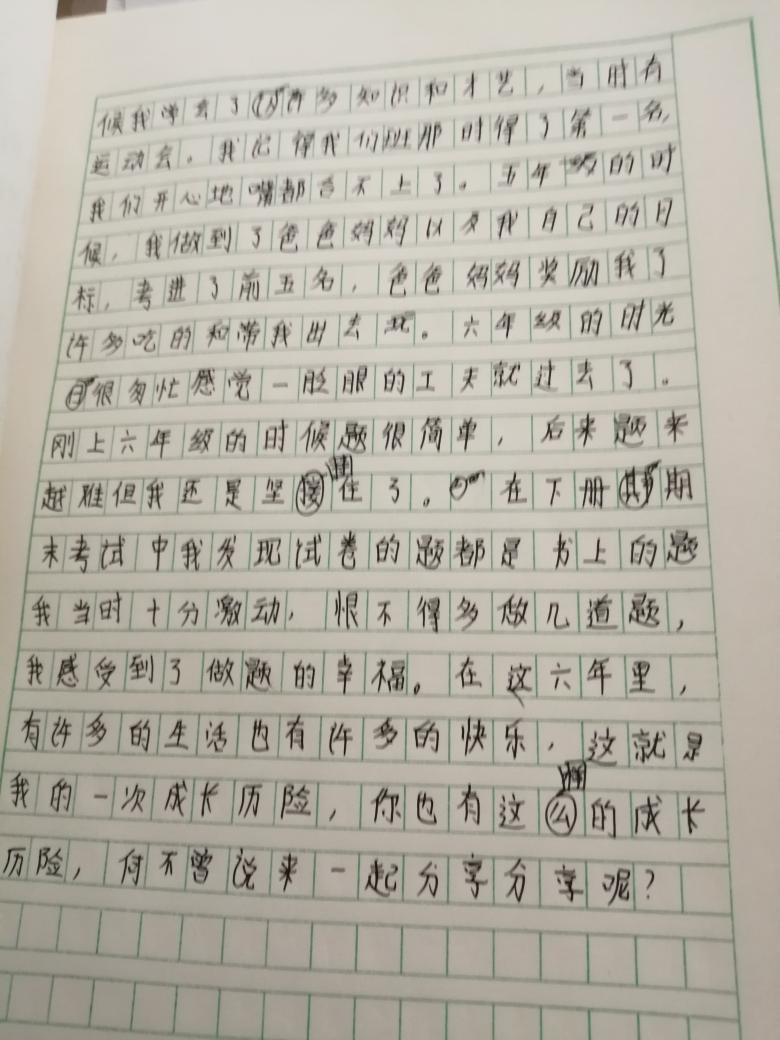 候我学会了许多知识和才艺，当时有
运动会。我记得我们班那时得了第一名，
我们开心地嘴都合不上了。五年级的时
候，我做到了爸爸妈妈以及我自己的目
标，考进了前五名，爸爸妈妈奖励我了
许多吃的和带我出去玩。六年级的时光
很匆忙感觉一眨眼的工夫就过去了。
刚上六年级的时候题很简单，后来题来
越难但我还是坚接住了。在下册期
末考试中我发现试卷的题都是书上的题
我当时十分激动，恨不得多做几道题，
我感受到了做题的幸福。在这六年里，
有许多的生活也有许多的快乐，这就是
我的一次成长历险，你也有这么的成长
历险，何不曾说来一起分享分享呢？